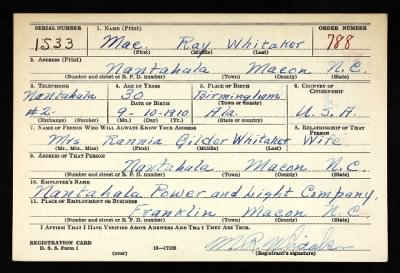 SERIAL NUMBER 1. NAME (Print) ORDER NUMBER
1533 Mac. Ray Whitaker 788
(First) (Middle) (Last)
2. ADDRESS (Print)
Nantahala Macon N.C.
(Number and street or R. F. D. number) (Town) (County) (State)
3. TELEPHONE 4. AGE IN YEARS 5. PLACE OF BIRTH 6. COUNTRY OF CITIZENSHIP
Nantahala 30 Birmingham
DATE OF BIRTH (Town or county)
#2- 9-10-1910 Ala. U.S.A.
(Exchange) (Number) (Mo.) (Day) (Yr.) (State or country)
7. NAME OF PERSON WHO WILL ALWAYS KNOW YOUR ADDRESS 8. RELATIONSHIP OF THAT PERSON
Mrs Rannia Gilder Whitaker Wife
(Mr., Mrs., Miss) (First) (Middle) (Last)
9. ADDRESS OF THAT PERSON
Nantahala Macon N.C.
(Number and street or R. F. D. number) (Town) (County) (State)
10. EMPLOYER'S NAME
Nantahala Power and Light Company.
11. PLACE OF EMPLOYMENT OR BUSINESS
Franklin Macon N.C.
(Number and street or R. F. D. number) (Town) (County) (State)
I AFFIRM THAT I HAVE VERIFIED ABOVE ANSWERS AND THAT THEY ARE TRUE.
REGISTRATION CARD
D. S. S. Form 1 16-17105 M. R. Whitaker
(over) (Registrant's signature)